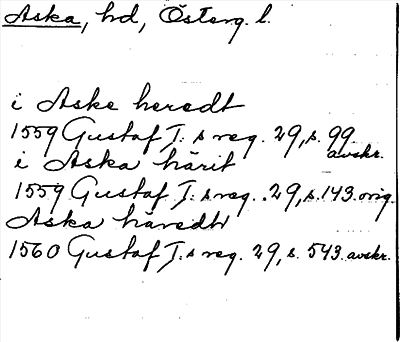 Aska, hd, Österg. l.
i Aske heredt
1559 Gustaf I:s reg. 29, s. 99 avskr.
i Aska härit
1559 Gustaf I:s reg. 29, s. 143 orig.
Aska häredt
1560 Gustaf I:s reg. 29, s. 543 avskr.